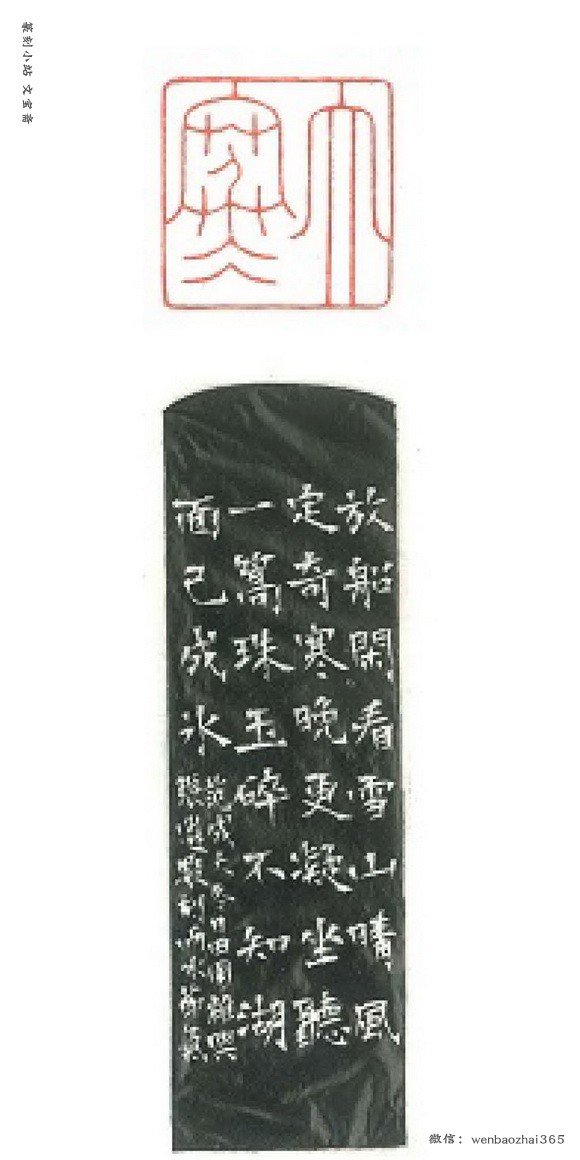 篆刻小站 文宝斋
大寒
放船閑看雪山晴風
定奇寒晚更凝坐聽
一篙珠玉碎不知湖
面已成冰
范成大冬日田園雜興
微信：wenbaozhai365